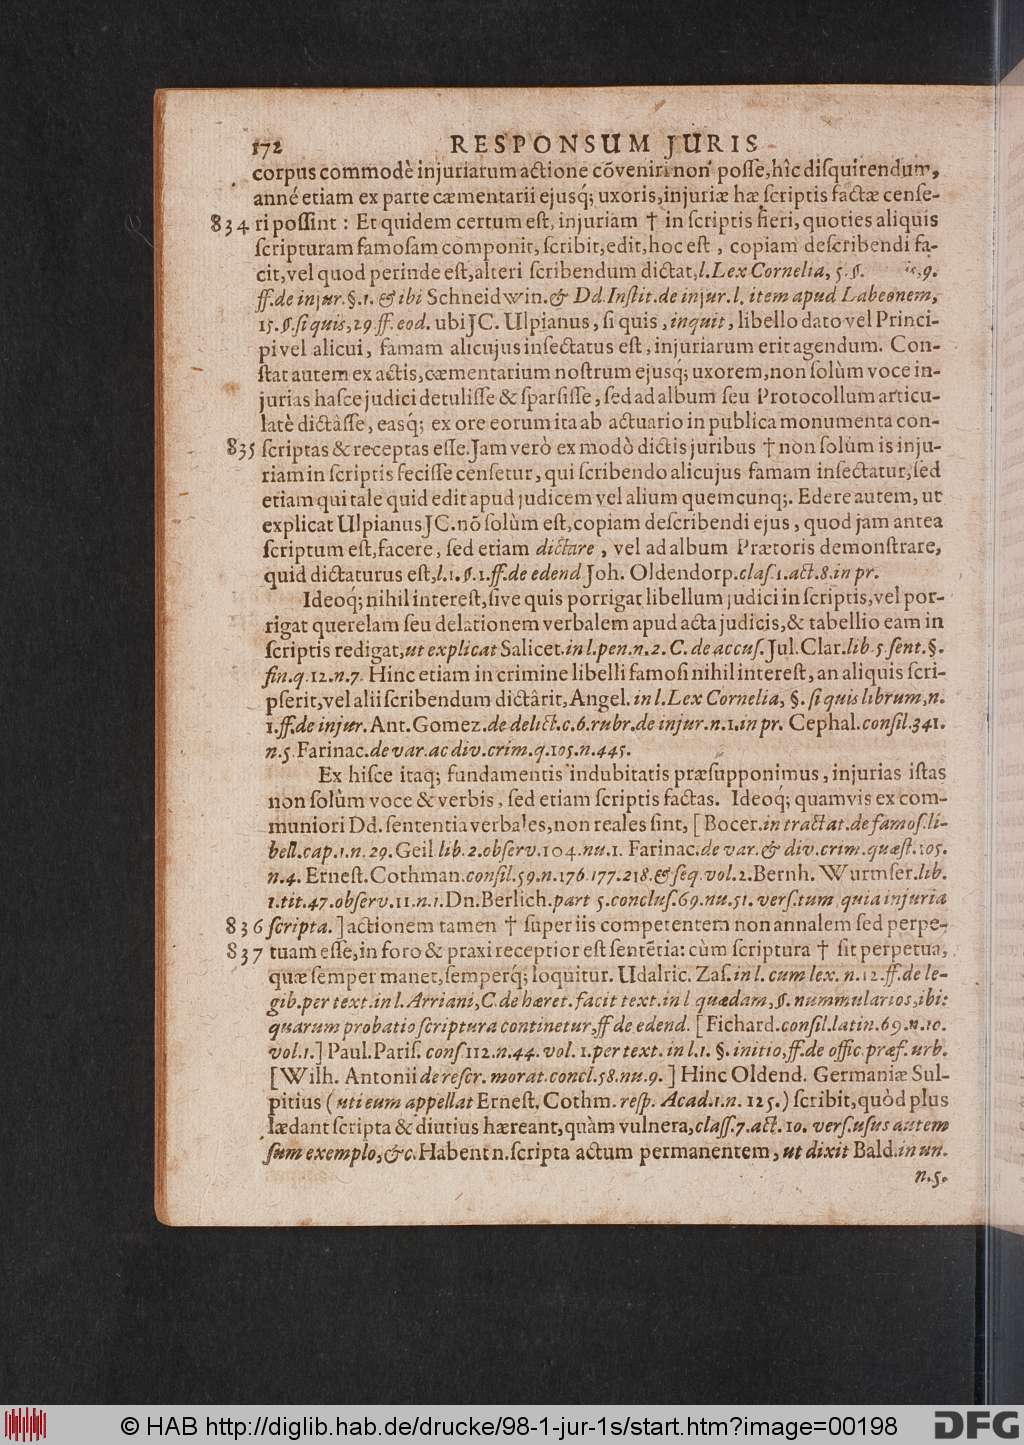 172 RESPONSUM JURIS
corpus commodè injuriarum actione cōveniri non posse, hîc disquirendum,
anné etiam ex parte cæmentarii ejusq́; uxoris, injuriæ hæ scriptis factæ cense-
834 ri possint : Et quidem certum est, injuriam † in scriptis fieri, quoties aliquis
scripturam famosam componit, scribit, edit, hoc est , copiam describendi fa-
cit, vel quod perinde est, alteri scribendum dictat, l. Lex Cornelia, 5. §. 9.
ff. de injur. §. 1. & ibi Schneidwin. & Dd. Instit. de injur. l. item apud Labeonem,
15. §. si quis, 29. ff. eod. ubi JC. Ulpianus , si quis , inquit , libello dato vel Princi-
pi vel alicui, famam alicujus insectatus est , injuriarum erit agendum. Con-
stat autem ex actis, cæmentarium nostrum ejusq́; uxorem, non solùm voce in-
jurias hasce judici detulisse & sparsisse , sed ad album seu Protocollum articu-
latè dictâsse, easq́; ex ore eorum ita ab actuario in publica monumenta con-
835 scriptas & receptas esse. Jam verò ex modò dictis juribus † non solùm is inju-
riam in scriptis fecisse censetur, qui scribendo alicujus famam insectatur, sed
etiam qui tale quid edit apud judicem vel alium quemcunq;. Edere autem, ut
explicat Ulpianus JC. nō solùm est, copiam describendi ejus , quod jam antea
scriptum est, facere , sed etiam dictare , vel ad album Prætoris demonstrare,
quid dictaturus est, l. 1. §. 1. ff. de edend Joh. Oldendorp. clas. 1. act. 8. in pr.
Ideoq́; nihil interest, sive quis porrigat libellum judici in scriptis, vel por-
rigat querelam seu delationem verbalem apud acta judicis, & tabellio eam in
scriptis redigat, ut explicat Salicet. in l. pen. n. 2. C. de accus. Jul. Clar. lib. 5 sent. §.
fin. q. 12. n. 7. Hinc etiam in crimine libelli famosi nihil interest , an aliquis scri-
pserit, vel alii scribendum dictârit, Angel. in l. Lex Cornelia, §. si quis librum, n.
1. ff. de injur. Ant. Gomez. de delict. c. 6. rubr. de injur. n. 1. in pr. Cephal. consil. 341.
n. 5 Farinac. de var. ac div. crim. q. 105. n. 445.
Ex hisce itaq; fundamentis indubitatis præsupponimus , injurias istas
non solùm voce & verbis , sed etiam scriptis factas. Ideoq́; quamvis ex com-
muniori Dd. sententia verbales, non reales sint, [ Bocer. in tractat. de famos. li-
bell. cap. 1. n. 29. Geil lib. 2. observ. 104. nu. 1. Farinac. de var. & div. crim. quæst. 105.
n. 4. Ernest. Cothman. consil. 59. n. 176. 177. 218. & seq. vol. 2. Bernh. Wurmser. lib.
1. tit. 47. observ. 11. n. 1. Dn. Berlich. part 5. conclus. 69. nu. 51. vers. tum, quia injuria
836 scripta. ] actionem tamen † super iis competentem non annalem sed perpe-
837 tuam esse, in foro & praxi receptior est sentētia: cùm scriptura † sit perpetua,
quæ semper manet, semperq́; loquitur. Udalric. Zas. in l. cum lex. n. 12. ff. de le-
gib. per text. in l. Arriani, C. de hæret. facit text. in l quædam, §. nummularios, ibi:
quarum probatio scriptura continetur, ff de edend. [ Fichard. consil. latin. 69. n. 10.
vol. 1. ] Paul. Paris. cons. 112. n. 44. vol. 1. per text. in l. 1. §. initio, ff. de offic. præf. urb.
[ Wilh. Antonii de rescr. morat. concl. 58. nu. 9. ] Hinc Oldend. Germaniæ Sul-
pitius ( uti eum appellat Ernest. Cothm. resp. Acad. 1. n. 125. ) scribit, quòd plus
lædant scripta & diutius hæreant, quàm vulnera, class. 7. act. 10. vers. usus autem
sum exemplo, &c. Habent n. scripta actum permanentem , ut dixit Bald. in un.
n. 5.
© HAB http://diglib.hab.de/drucke/98-1-jur-1s/start.htm?image=00198 DFG